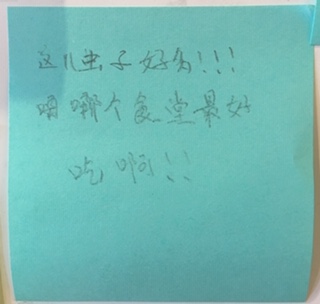 这儿虫子好多!!!
哪个食堂最好
吃啊!!